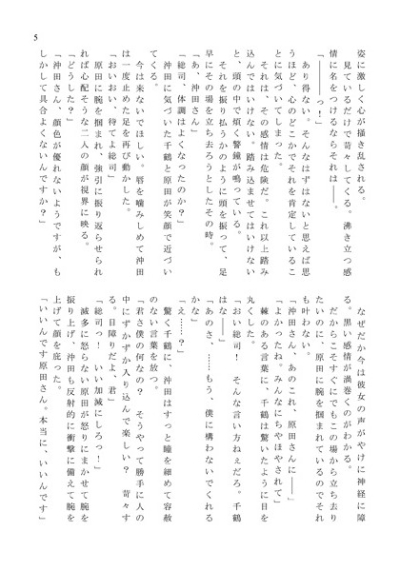 5
姿に激しく心が掻き乱される。
　見ているだけで苛々してくる。沸き立つ感
情に名をつけるならそれは――。
「――――っ！」
　あり得ない。そんなはずはないと思えば思
うほど、心のどこかでそれを肯定しているこ
とに気づいてしまった。
　それは、その感情は危険だ。これ以上踏み
込んではいけない。踏み込ませてはいけない
と、頭の中で煩く警鐘が鳴っている。
　それを振り払うかのように頭を振って、足
早にその場を立ち去ろうとしたその時。
「あ、沖田さん」
「総司、体調はよくなったのか？」
　沖田に気づいた千鶴と原田が笑顔で近づい
てくる。
　今は来ないでほしい。唇を噛みしめて沖田
は一度止めた足を再び動かした。
「おいおい、待てよ総司」
　原田に腕を掴まれ、強引に振り返らせられ
れば心配そうな二人の顔が視界に映る。
「どうした？」
「沖田さん、顔色が優れないようですが、も
しかして具合よくないんですか？」
　なぜだか今は彼女の声がやけに神経に障
る。黒い感情が渦巻くのがわかる。
　だからこそすぐにでもこの場から立ち去り
たいのに、原田に腕を掴まれているのでそれ
も叶わない。
「沖田さん、あのこれ、原田さんに――」
「よかったね。みんなにちやほやされて」
　棘のある言葉に、千鶴は驚いたように目を
丸くした。
「おい総司！　そんな言い方ねぇだろ。千鶴
はな――」
「あのさ、……もう、僕に構わないでくれる
かな」
「え……？」
　驚く千鶴に、沖田はすっと瞳を細めて容赦
のない言葉を放つ。
「君さ僕の何なの？　そうやって勝手に人の
中にずかずか入り込んで楽しい？　苛々す
る。目障りだよ、君」
「総司っ！　いい加減にしろっ！」
　滅多に怒らない原田が怒りにまかせて腕を
振り上げ、沖田も反射的に衝撃に備えて腕を
上げて顔を庇った。
「いいんです原田さん。本当に、いいんです」